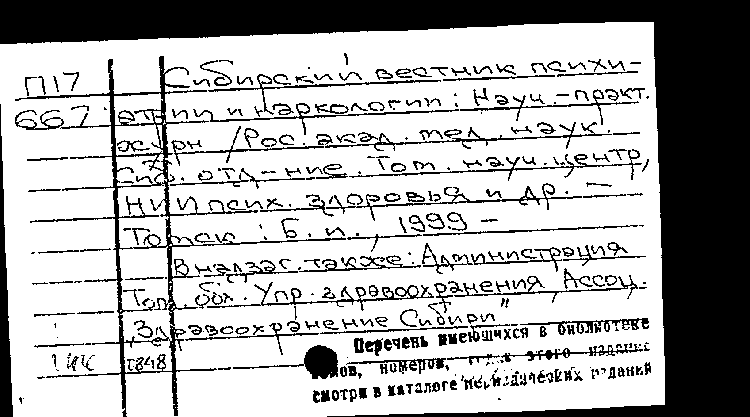 П17 Сибирский вестник психи-
667 атрии и наркологии: Науч.-практ.
журн /Рос. акад. мед. наук.
Сиб. отд-ние. Том. науч. центр,
НИИ псих. здоровья и др. —
Томск : Б. и., 1999 –
В надзаг. также: Администрация
Том. обл. Упр. здравоохранения, Ассоц.
„Здравоохранение Сибири"
Перечень имеющихся в библиотеке
томов, номеров, этого издания
смотри в каталоге периодических изданий
1848